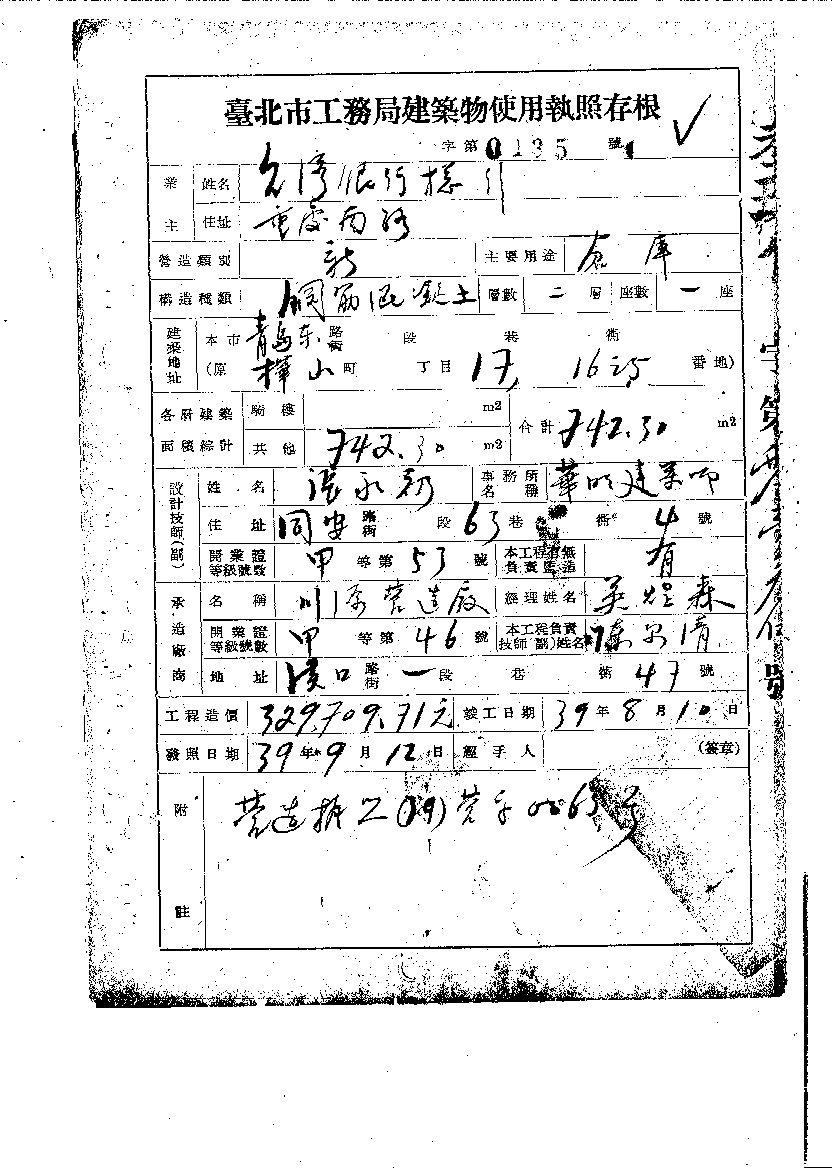 臺北市工務局建築物使用執照存根
字第0135號
業主 姓名 台灣銀行總行
住址 重慶南路
營造類別 新 主要用途 倉庫
構造種類 鋼筋混凝土 層數 二層 座數 一座
建築地址 本市 青島东 路街 段 巷 衖
(原 樺山町 丁目 17, 16 番地)
各層建築面積綜計 騎樓 m2 合計 742.30 m2
其他 742.30 m2
設計技師(副) 姓名 事務所名稱 華明建築師
住址 同安 路街 段 63巷 衖 4號
開業證等級號數 甲等第53號 本工程有無負責監造 有
承造廠商 名稱 川原營造廠 經理姓名 森
開業證等級號數 甲等第46號 本工程負責技師(副)姓名 清
地址 漢口 路街 一段 巷 衖 47號
工程造價 329,709.71元 竣工日期 39年8月10日
發照日期 39年9月12日 經手人 (簽章)
附註 营造执照(39)营字0063号